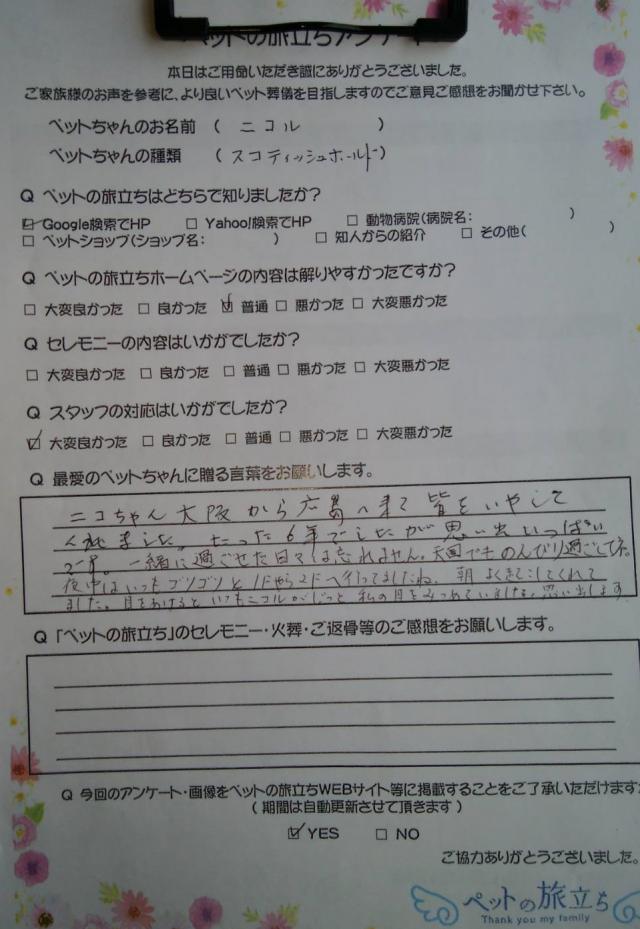 ペットの旅立ちアンケート
本日はご用命いただき誠にありがとうございました。
ご家族様のお声を参考に、より良いペット葬儀を目指しますのでご意見ご感想をお聞かせ下さい。
ペットちゃんのお名前 ( ニコル )
ペットちゃんの種類 ( スコティッシュホールド )
Q ペットの旅立ちはどちらで知りましたか?
☑ Google検索でHP □ Yahoo!検索でHP □ 動物病院(病院名: )
□ ペットショップ(ショップ名: ) □ 知人からの紹介 □ その他( )
Q ペットの旅立ちホームページの内容は解りやすかったですか?
□ 大変良かった □ 良かった ☑ 普通 □ 悪かった □ 大変悪かった
Q セレモニーの内容はいかがでしたか?
□ 大変良かった □ 良かった □ 普通 □ 悪かった □ 大変悪かった
Q スタッフの対応はいかがでしたか?
☑ 大変良かった □ 良かった □ 普通 □ 悪かった □ 大変悪かった
Q 最愛のペットちゃんに贈る言葉をお願いします。
ニコちゃん 大阪から広島へ来て 皆をいやして
くれました。たった6年でしたが思い出いっぱい
です。一緒に過ごせた日々は忘れません。天国でものんびり過ごしてネ。
夜中はいつもゴソゴソと1Fから2Fへ行ってましたね。朝 よくおこしてくれて
ました。目をあけると いつもニコルがじっと 私の目をみつめていました。思い出します
Q 「ペットの旅立ち」のセレモニー・火葬・ご返骨等のご感想をお願いします。
Q 今回のアンケート・画像をペットの旅立ちWEBサイト等に掲載することをご了承いただけますか
( 期間は自動更新させて頂きます )
☑ YES □ NO
ご協力ありがとうございました。
ペットの旅立ち
Thank you my family